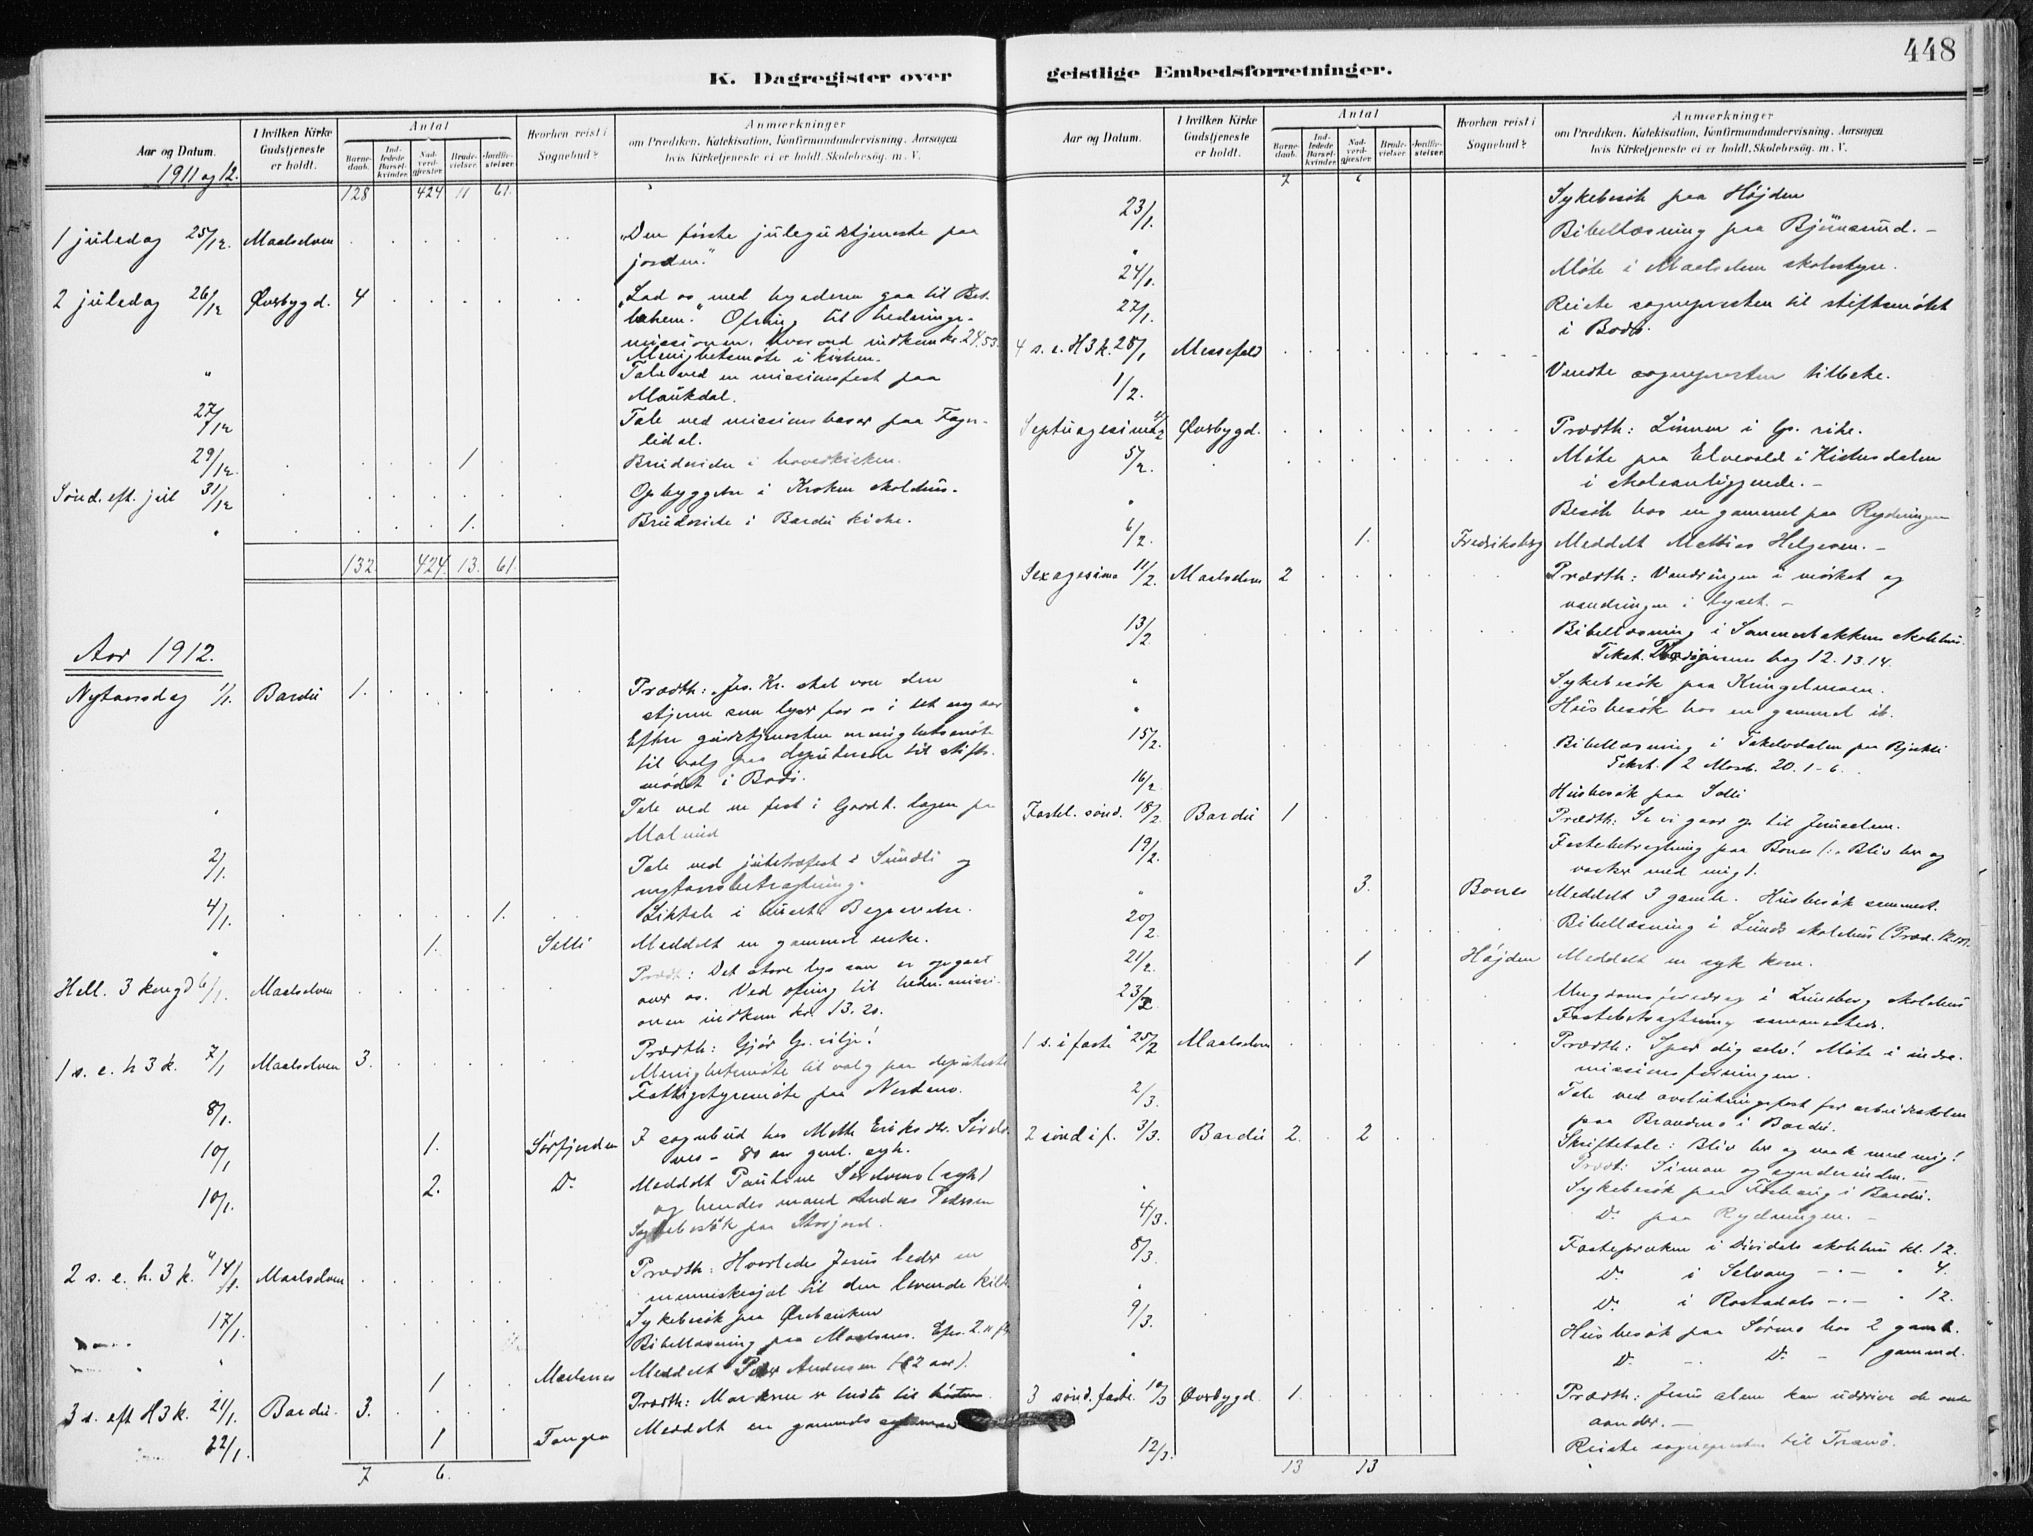 448
K. Dagregister over
geistlige Embedsforretninger.
Aar og Datum.
I hvilken Kirke Gudstjeneste er holdt.
Antal
Barnedaab.
Indledede Barselkvinder.
Nadverdgjæster.
Brudevielser.
Jordfæstelser.
Hvorhen reist i Sognebud?
Anmærkninger
om Prædiken, Katekisation, Konfirmandundervisning, Aarsagen
hvis Kirketjeneste ei er holdt, Skolebesøg. m. V.
1911 og 12.
128 424 11 61.
1 juledag 25/12 Maalselven "Den første julegudstjeneste paa
jorden."
2 juledag 26/12 Øverbygd. 4 "Lad os med hyrderne gaa til Bet-
lehem." Ofring til hednings-
missionen. Hvorved indkom kr. 24.53.
Menighetsmøte i kirken.
" Tale ved en missionsfest paa
Maukdal.
27/12 Tale ved missionsbasar paa Fagerlidal.
29/12 1 Brudevielse i hovedkirken.
Sønd. eft. jul 31/12 Opbyggelse i Kroken skolehus.
" 1. Brudevielse i Bardu kirke.
132. 424. 13. 61.
Aar 1912.
Nytaarsdag 1/1. Bardu 1. Prædth: Jes. Kr. skal være den
stjerne som lyser for os i det ny aar
Efter gudstjenesten menighetsmøte
til valg paa deputerede til stifts-
mødet i Bodø.
" Tale ved en fest i Goodt. logen paa
2/1. Tale ved juletræfest i Sundli og
nytaarsbetragtning.
4/1. 1. Liktale i Begravelse.
" 1. Selli Meddelt en gammel enke.
Hell. 3 kong d 6/1. Maalselven Prædt: Det store lys som er opgaat
over os. Ved ofring til hedn. missi-
onen indkom kr. 13.20.
1 s. e. h 3 k. 7/1 Maalselven 3. Prædth: Gjør G. vilje!
Menighetsmøte til valg paa deputerede
8/1. Fattigstyremøte paa Nordmo.
10/1 1. Sørfjorden I sognebud hos Mette Eriksdtr.
– 80 aar gml. syk.
10/1. 2. Do. Meddelt Pauline (syk)
og hendes mand Andreas Pedersen
" Sykebesøk paa Storjord.
2 s. e. h. 3 k. 14/1. Maalselven Prædth: Hvorledes Jesus leder en
menneskesjæl til den levende kilde
17/1. Sykebesøk paa Ørebakken
Bibellæsning paa Maalsnes. Efes. 2.
" 1 Maalsnes Meddelt Peder Andersen (82 aar).
3 s. eft H 3 k. 21/1. Bardu. 3. Prædth: Markerne er hvite til høsten.
22/1. 1 Tangen Meddelt en gammel sykemand
7 6.
Aar og Datum.
I hvilken Kirke Gudstjeneste er holdt.
Antal
Barnedaab.
Indledede Barselkvinder.
Nadverdgjæster.
Brudevielser.
Jordfæstelser.
Hvorhen reist i Sognebud?
Anmærkninger
om Prædiken, Katekisation, Konfirmandundervisning, Aarsagen
hvis Kirketjeneste ei er holdt, Skolebesøg. m. V.
7 6
Sykebesøk paa Højden
23/1. Bibellæsning paa Bjørnsund. –
" Møte i Maalselven skolestyre.
24/1.
27/1. Reiste sogneprosten til stiftsmøtet
i Bodø.
4 s. e. H 3 k. 28/1 Messefald
1/2. Vendte sogneprosten tilbake.
Septuagesima 4/2 Øverbygd. Prædth: Lønnen i G. rike.
5/2. Møte paa Elvevold i Kirkesdalen
i skoleanliggende. –
" Besøk hos en gammel paa Rydningen
6/2. 1. Fredriksberg Meddelt Mattias Helgesen. –
Sexagesima 11/2. Maalselven 2 Prædth: Vandringen i mørket og
vandringen i lyset. –
13/2 Bibellæsning i Sommerbakken skolehus.
Tekst. Dommernes bog 12. 13. 14.
" Sykebesøk paa Kongelmoen.
" Husbesøk hos en gammel ib.
15/2. Bibellæsning i Takelvdalen paa Bjerkli
Tekst. 2 Mosb. 20. 1-6.
16/2. Husbesøk paa Solli
Fastel. sønd. 18/2. Bardu 1 Prædth: Se vi gaar op til Jerusalem.
19/2. Fastebetragtning paa Bones (: Bliv her og
vaaker med mig).
" 3. Bones Meddelt 3 gamle. Husbesøk sammest.
20/2. Bibellæsning i Lunds skolehus (Præd. 12.
21/2. 1 Højden Meddelt en syk kone.
23/2 Ungdomsforedrag i Lundberg skolehus
" Fastebetragtning sammesteds.
1 s. i faste 25/2 Maalselven Prædth: Spar dig selv! Møte i indre-
missionsforeningen.
2/3. Tale ved avslutningsfest for arbeidsskolen
paa Brandmo i Bardu.
2 sønd i f. 3/3. Bardu 2. 2 Skriftetale: Bliv her og vaak med mig!
Prædt: Simon og synderinden. –
" Sykebesøk paa Fosshaug i Bardu.
4/3. Do. paa Rydningen. –
8/3 Fastepræken i Dividals skolehus kl. 12.
" Do. i Selvang – " – " 4.
9/3. Do. i Rostadals – " – " 12.
Husbesøk paa Sørmo hos 2 gamle.
" Do. – Do. – 1 gammel.
3 sønd. faste. 10/3 Øverbygd. 1. Prædth: Jesus alene kan uddrive de onde
aander. –
12/3. Reiste sogneprosten til Tranø.
13 13